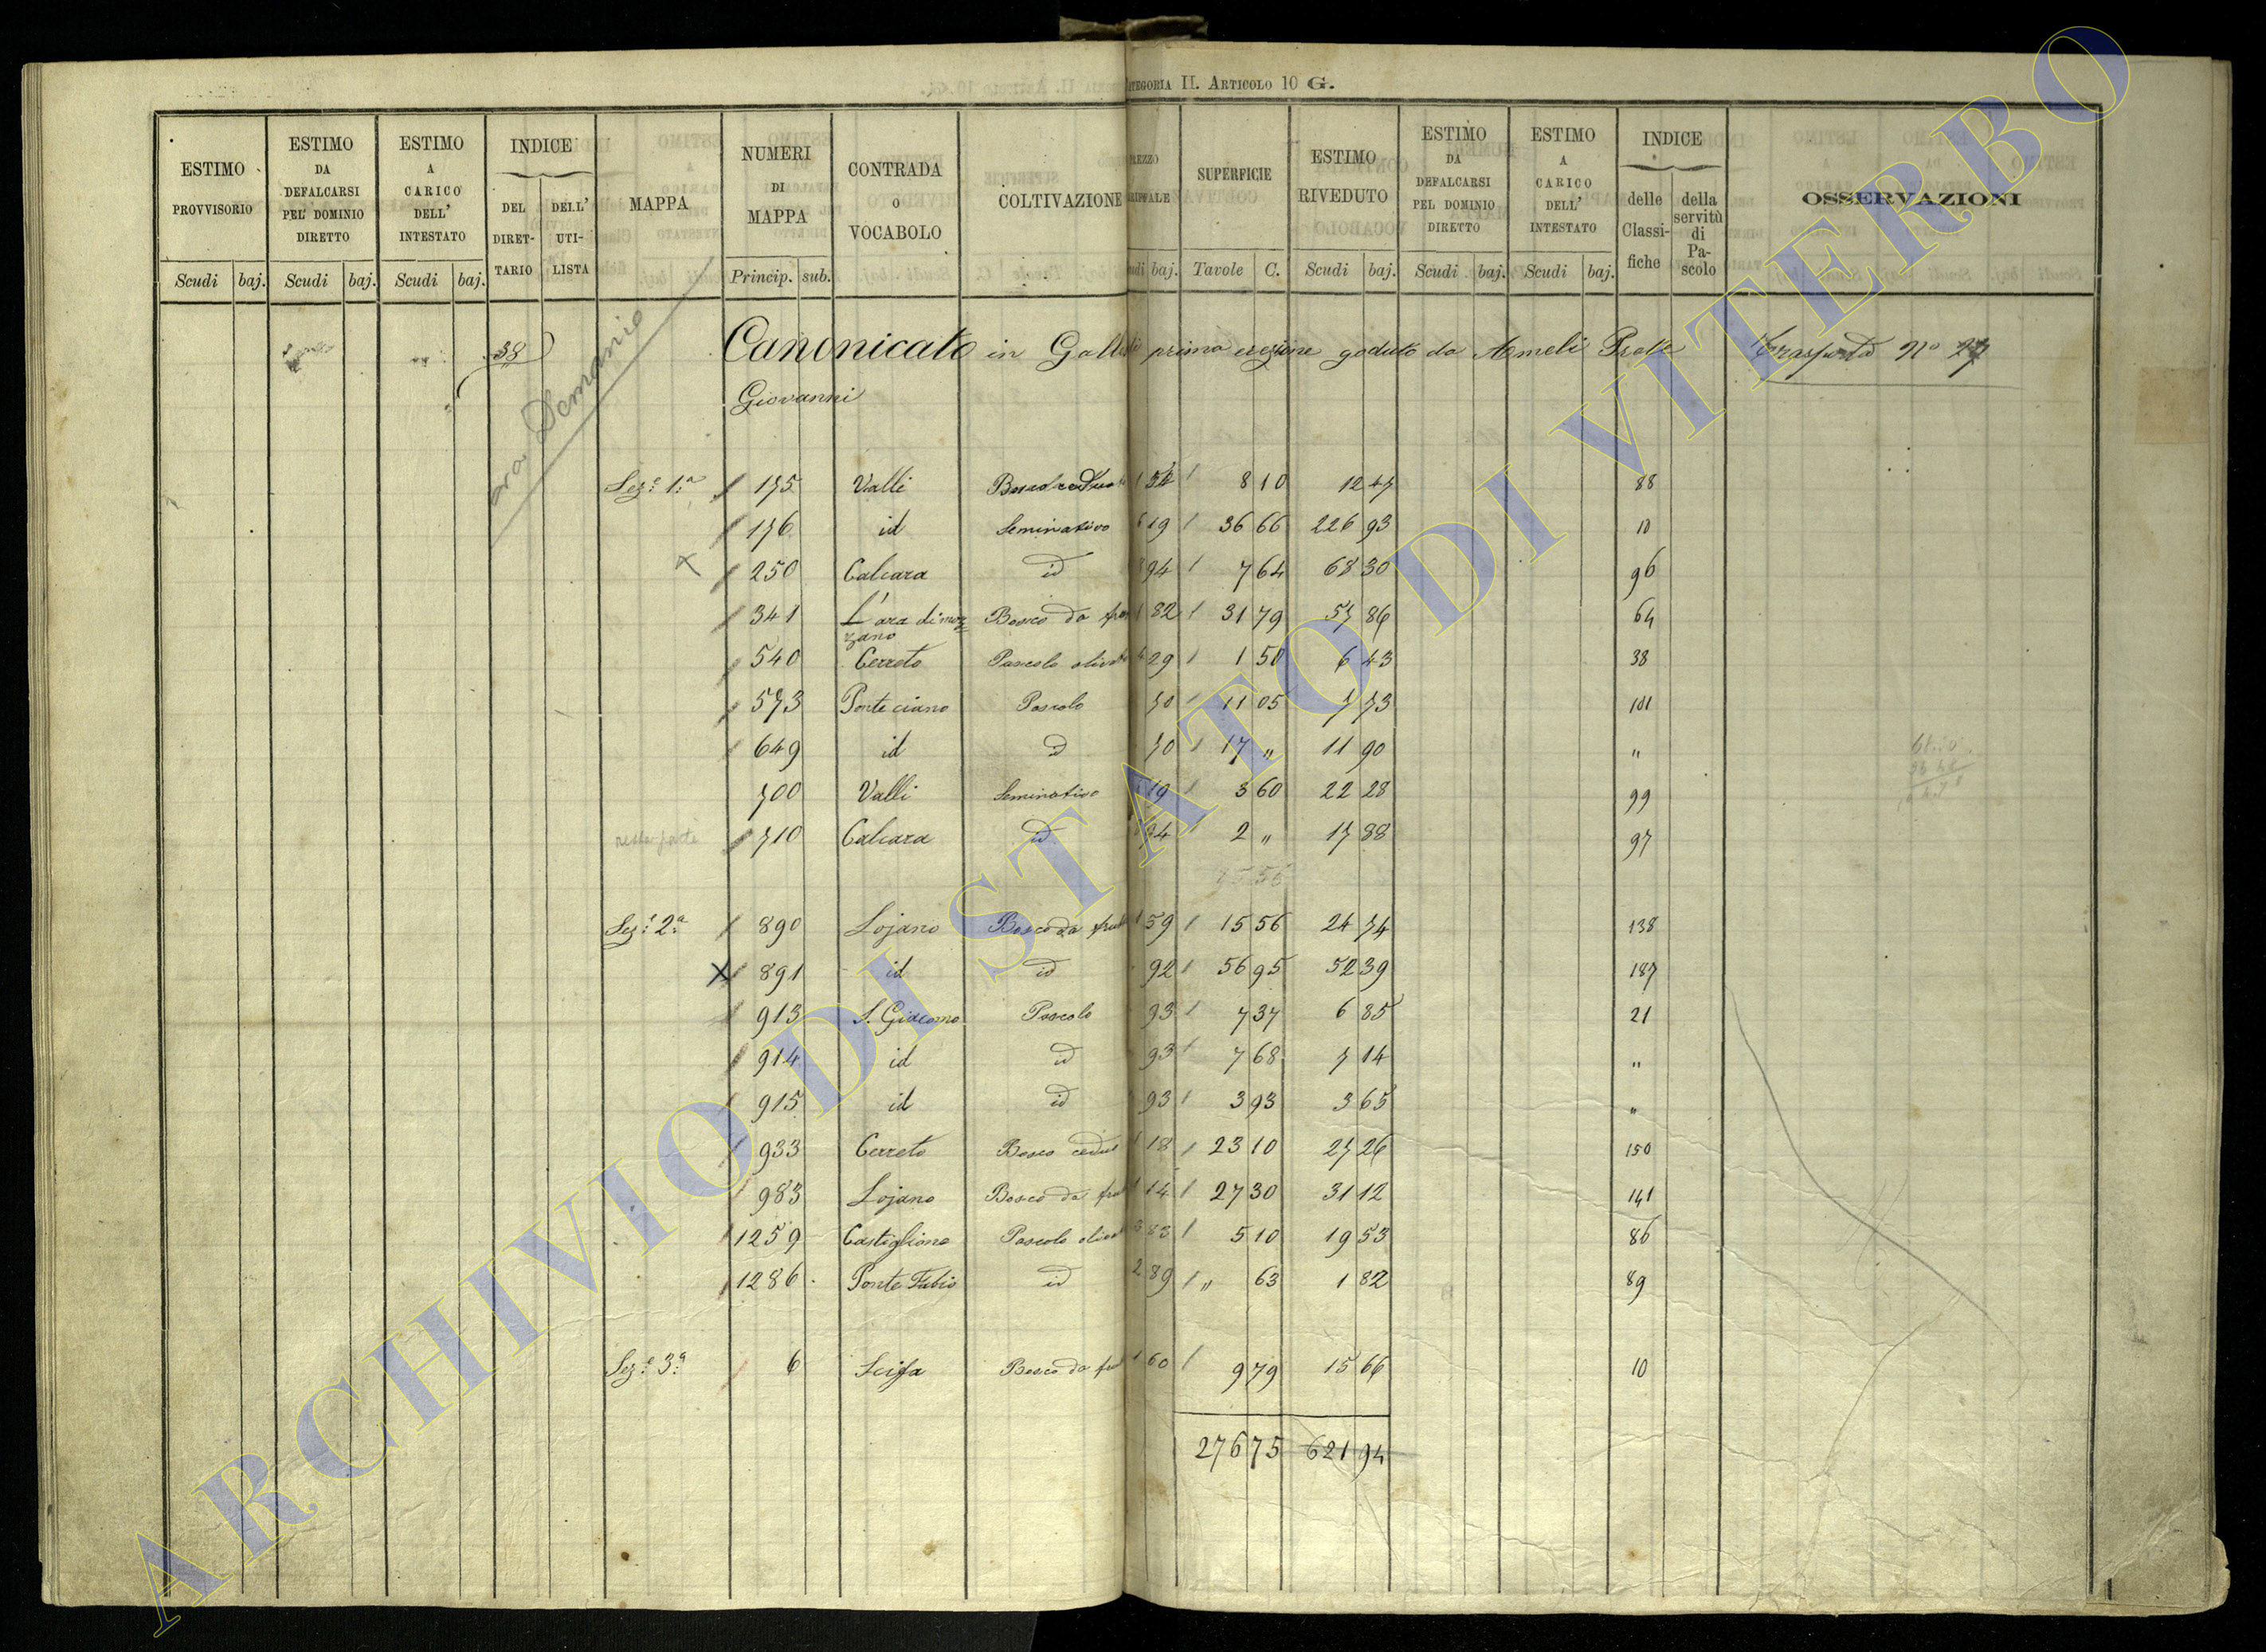 CATEGORIA II. ARTICOLO 10 G.
ESTIMO PROVVISORIO
ESTIMO DA DEFALCARSI PEL DOMINIO DIRETTO
ESTIMO A CARICO DELL' INTESTATO
INDICE
DEL DIRET-TARIO
DELL' UTI-LISTA
MAPPA
NUMERI DI MAPPA
CONTRADA O VOCABOLO
COLTIVAZIONE
SUPERFICIE
ESTIMO RIVEDUTO
ESTIMO DA DEFALCARSI PEL DOMINIO DIRETTO
ESTIMO A CARICO DELL' INTESTATO
INDICE
delle Classi-fiche
della servitù di Pa-scolo
OSSERVAZIONI
Scudi baj. Scudi baj. Scudi baj. Princip. sub. baj. Tavole C. Scudi baj. Scudi baj. Scudi baj.
38 Canonicato in prima erezione goduto da Ameli Trasporto No
Giovanni
ora Demanio
Sez.e 1.a 175 Valli 1 54 8 10 12 47 88
176 id Seminativo 6 19 36 66 226 93 10
X 250 Calcara id 94 7 64 68 30 96
341 L'ara di moz Bosco da 1 82 31 79 57 86 64
zano
540 Cerreto Pascolo 4 29 1 50 6 43 38
573 Ponte ciano Pascolo 70 11 05 7 73 101
649 id id 70 17 " 11 90 "
700 Valli Seminativo 19 3 60 22 28 99
710 Calcara id 94 2 " 17 88 97
Sez.e 2.a 890 Lojano Bosco da 1 59 15 56 24 74 138
X 891 id id 92 56 95 52 39 187
913 S. Giacomo Pascolo 93 7 37 6 85 21
914 id id 93 7 68 7 14 "
915 id id 93 3 93 3 65 "
933 Cerreto Bosco 1 18 23 10 27 26 150
983 Lojano Bosco da 1 14 27 30 31 12 141
1259 Castigliano Pascolo 3 83 5 10 19 53 86
1286 Ponte Fabio id 2 89 " 63 1 82 89
Sez.e 3.a 6 Bosco da 1 60 9 79 15 66 10
276 75 621 94
ARCHIVIO DI STATO DI VITERBO